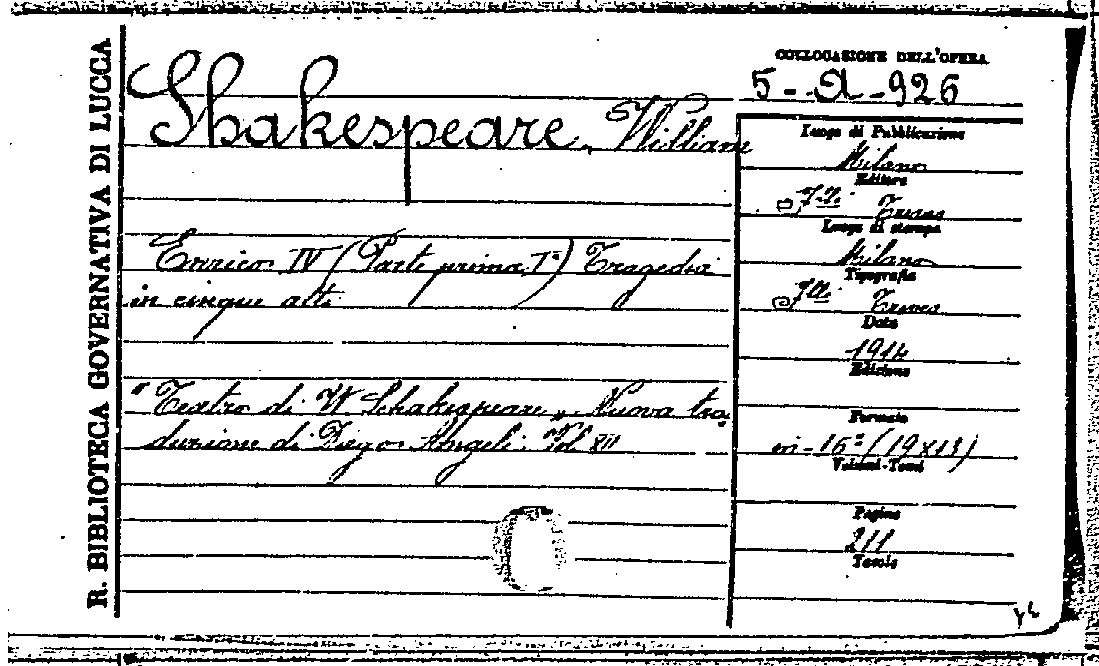 R. BIBLIOTECA GOVERNATIVA DI LUCCA
Shakespeare, William
Enrico IV (Parte prima, Iª) Tragedia
in cinque atti
"Teatro di W. Schakespeare„ Nuova tra-
duzione di Diego Angeli. Vol. XII
COLLOCAZIONE DELL'OPERA
5 - A - 926
Luogo di Pubblicazione
Milano
Editore
Treves
Luogo di stampa
Milano
Tipografia
Treves
Data
1914
Edizione
Formato
in-16° (19x13)
Volumi-Tomi
Pagine
211
Tavole